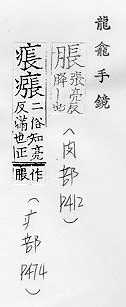 龍龕手鏡
脹張亮反也
(肉部 P412)
痮瘬二俗知亮反滿也正作脹
(疒部 P474)